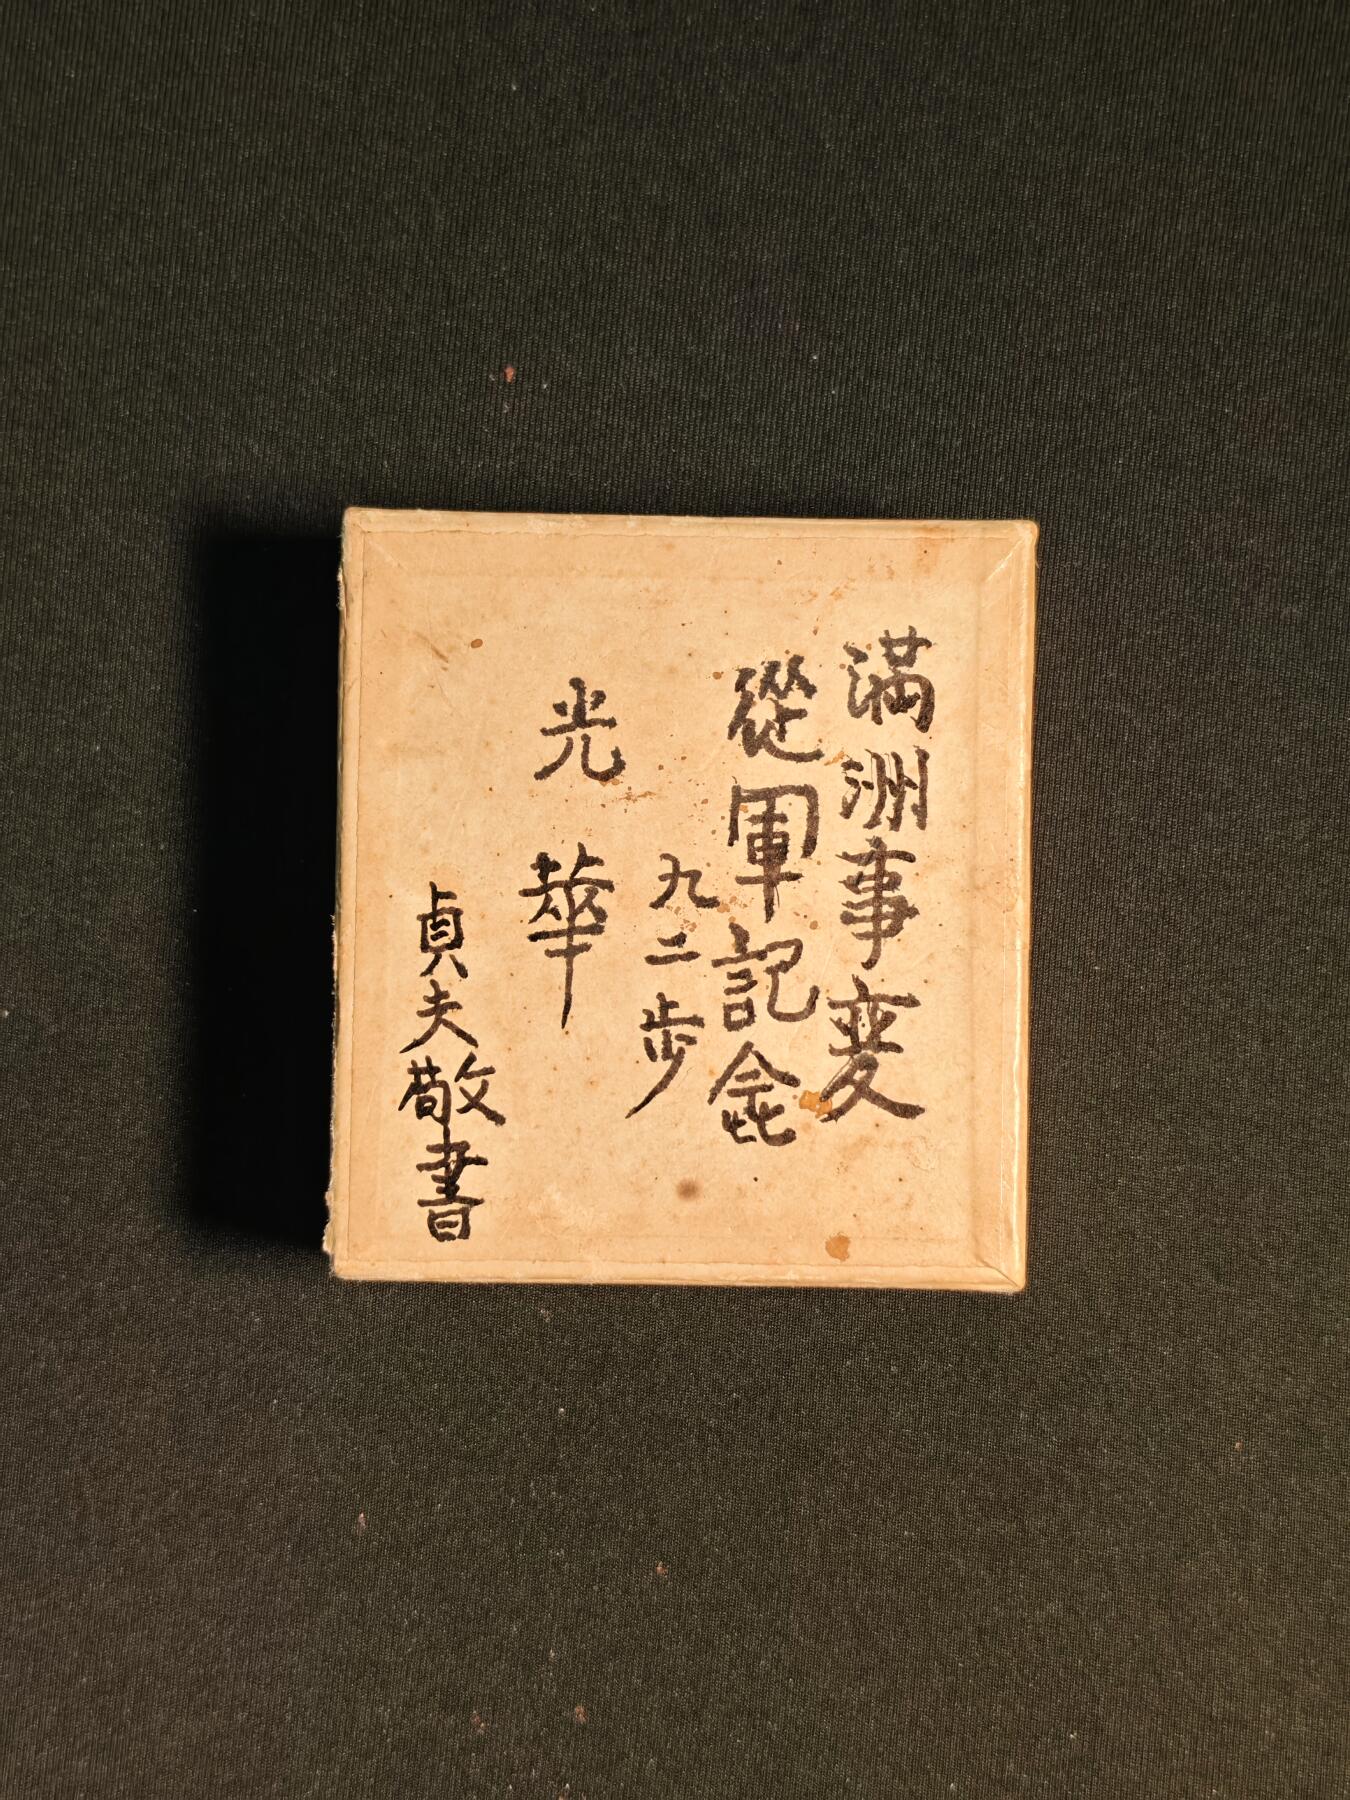 満洲事変
從軍記念
九二歩
光華
貞夫敬書